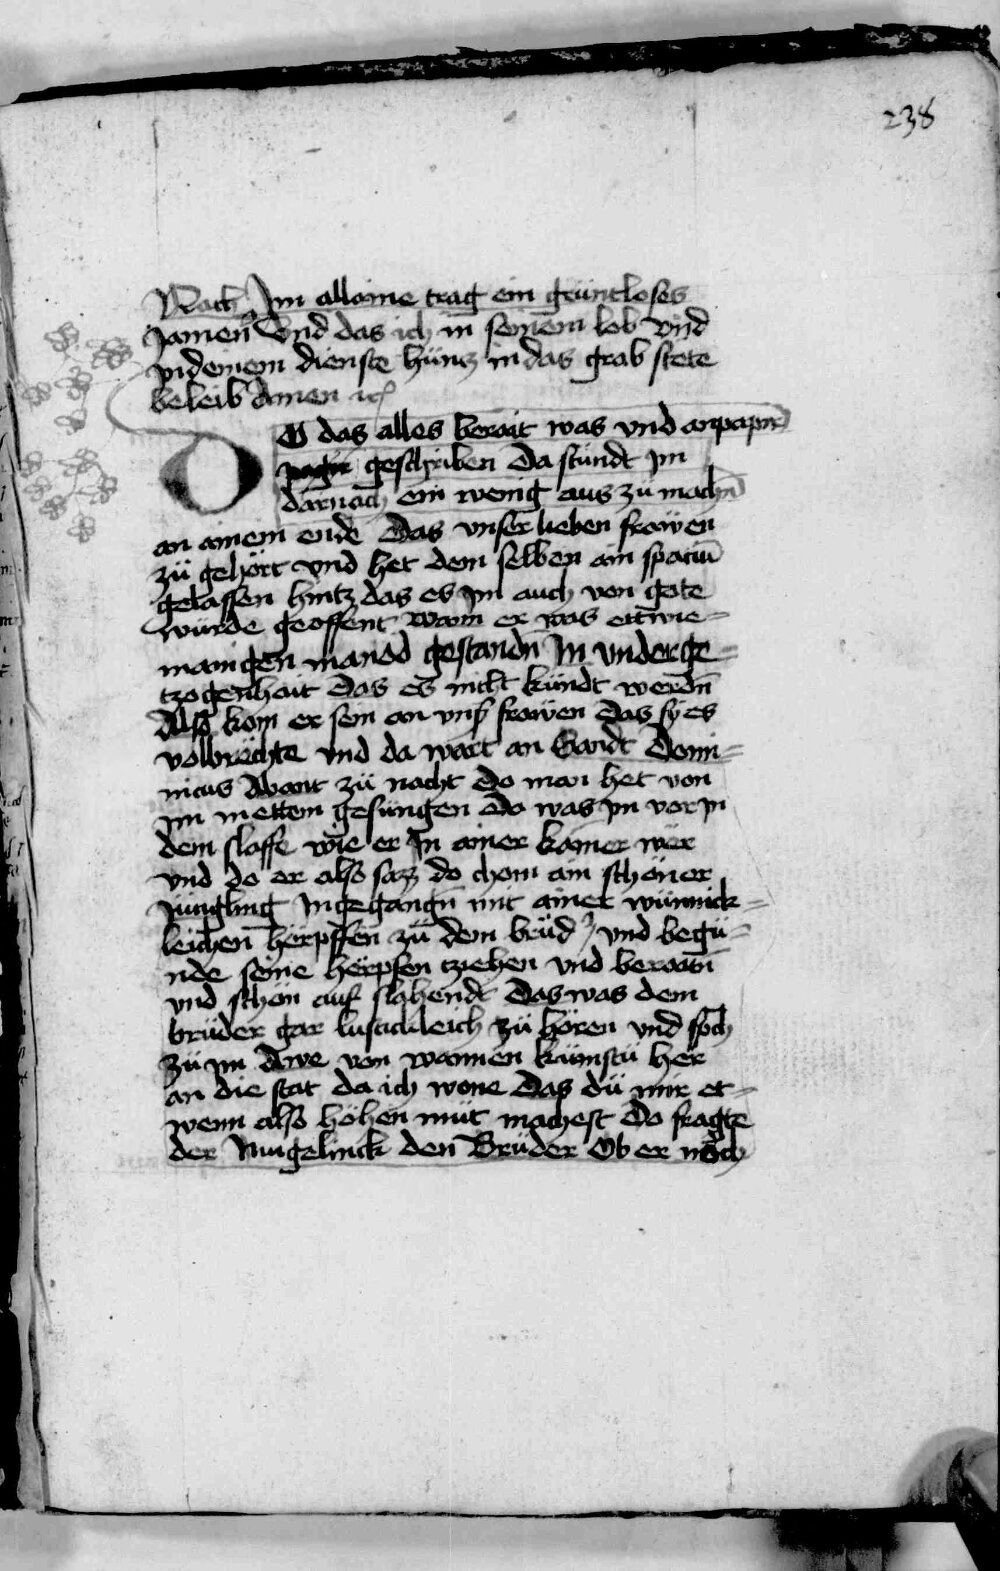 238
Nach Im allaine trag ein grüntloses
Jamern Und das ich in seinem lob vnd
in deinem dienste hüntz in das grab stete
beleib Amen
DO das alles berait was vnd an papir
geschriben Da stündt im
darnach ein wenig aus zü machn̄
an ainem ende Das vnser lieben frawen
zü gehört vnd het dem selben ain spaciū
gelassen hintz das es im auch von gote
würde geoffent Wann er was ettwie=
manigen manod gestandn̄ In vnderge=
tzogenhait Das es nicht kündt werdn̄
Also kom er sein an vnß frawen Das sy es
volbrechte vnd da wart an Sandt Domi=
nicus Abent zü nacht Do man het von
im metten gesüngen Do was im vor in
dem slaffe wie er In ainer kamer wer
vnd do er also sazz do chom ain schöner
jüngling In gegangn̄ mit ainer wünnick=
leichen herpffen zü dem brüd' vnd begü=
nde seine herpfen tziehen vnd beraitn̄
vnd schön auf slahendt Das was dem
brüder gar lustickleich zü hören vnd spch
zü im Awe von wannen kümstu her
an die stat da ich wone Das dü mir et=
wenn also hohen müt machest Do fragte
der Jungelinck den Brüder Ob er noch